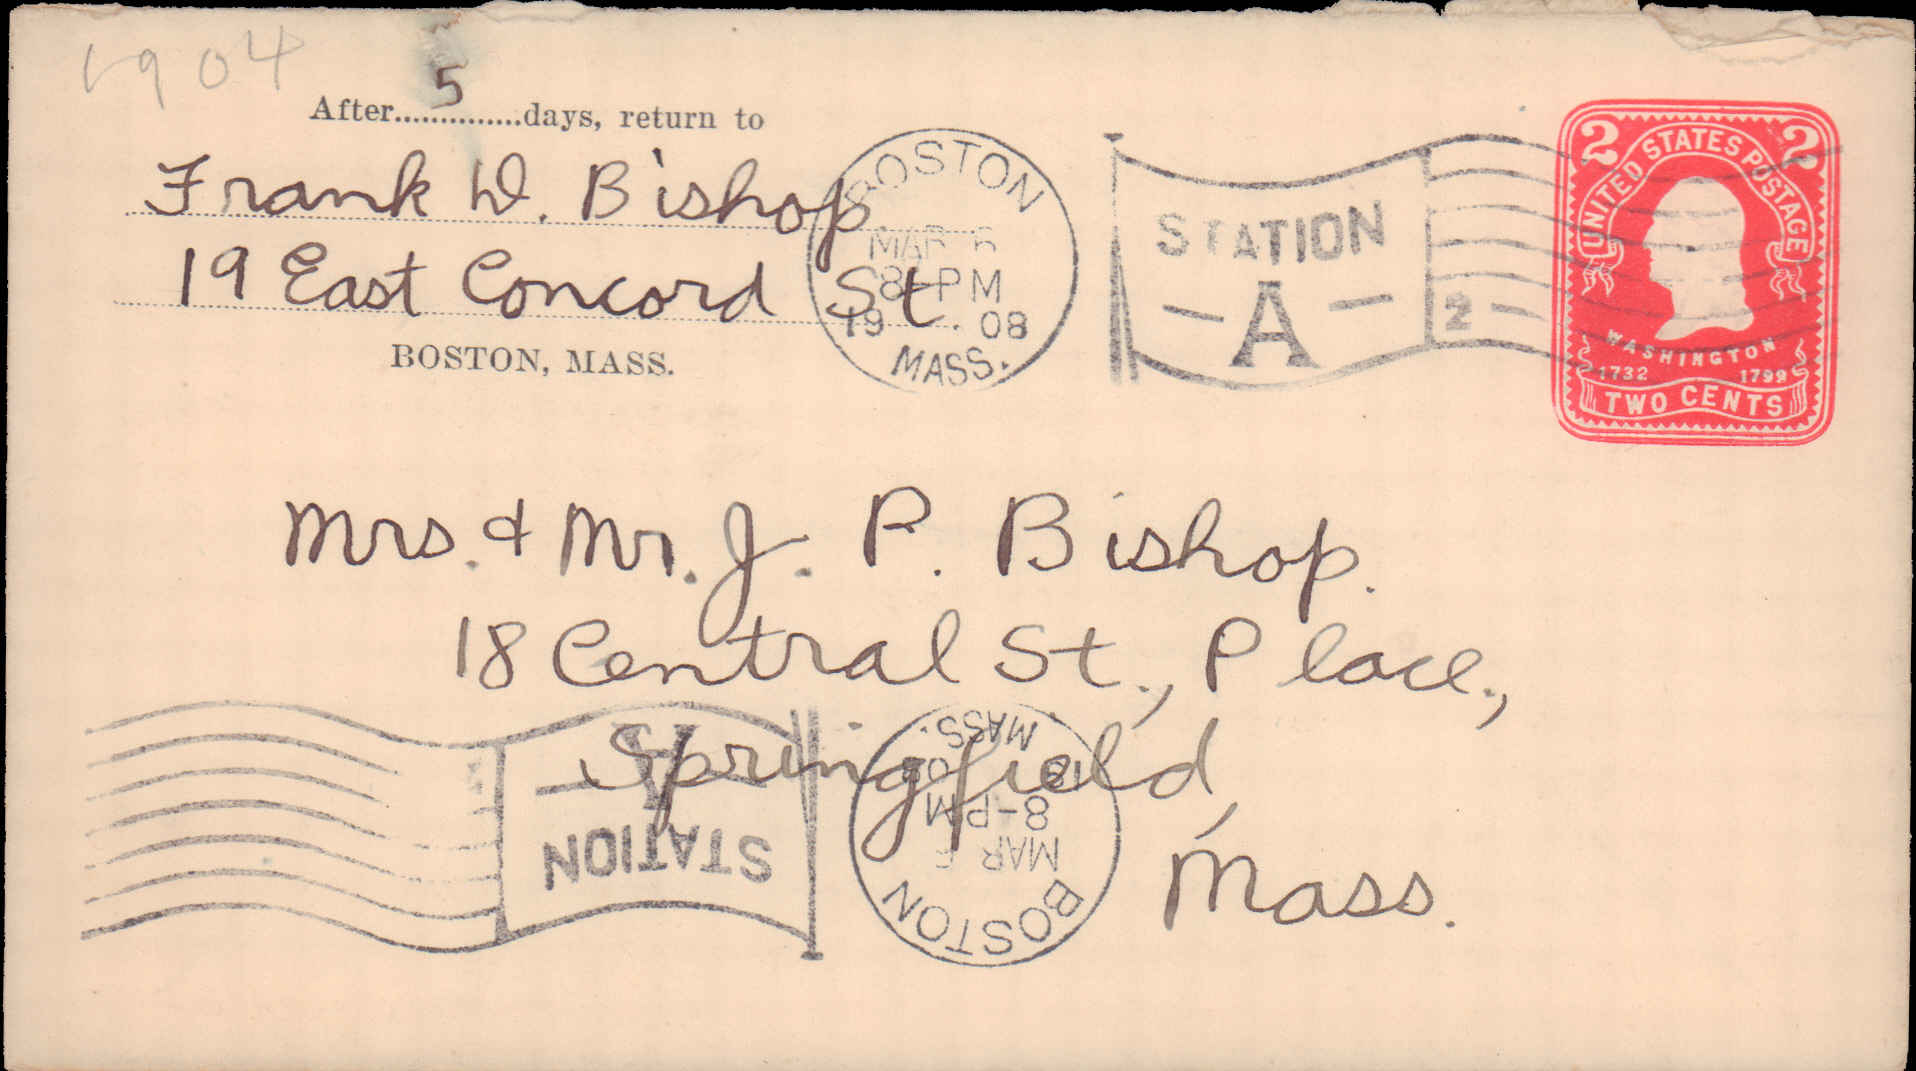 1904
After 5 days, return to
Frank W. Bishop
19 East Concord St.
BOSTON, MASS.
BOSTON
MAR 6
8-PM
19 08
MASS.
STATION
- A -
2
2 2
UNITED STATES POSTAGE
WASHINGTON
1732 1799
TWO CENTS
Mrs. & Mr. J. P. Bishop.
18 Central St., Place.,
Springfield,
Mass.
STATION
- A -
BOSTON
MAR
8-PM
MASS.